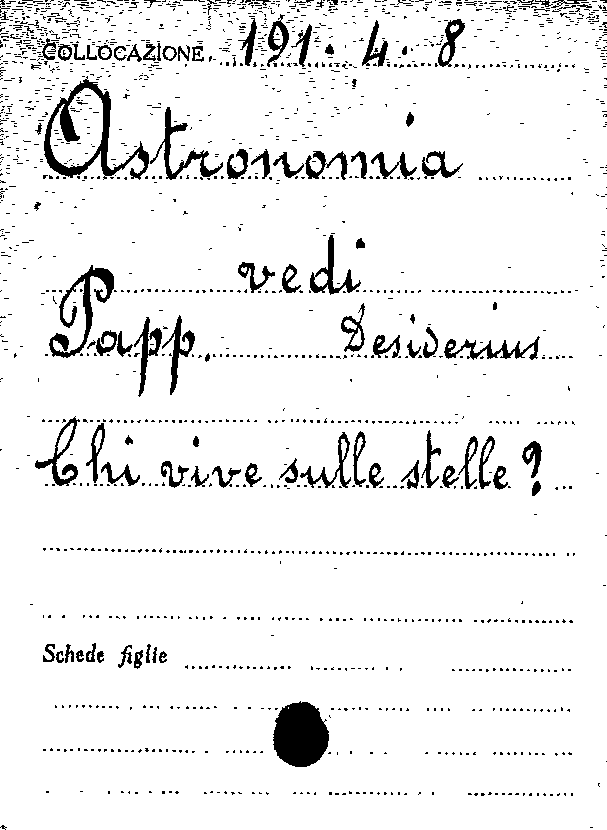 COLLOCAZIONE. 191. 4. 8
Astronomia
vedi
Papp. Desiderius
Chi vive sulle stelle?
Schede figlie